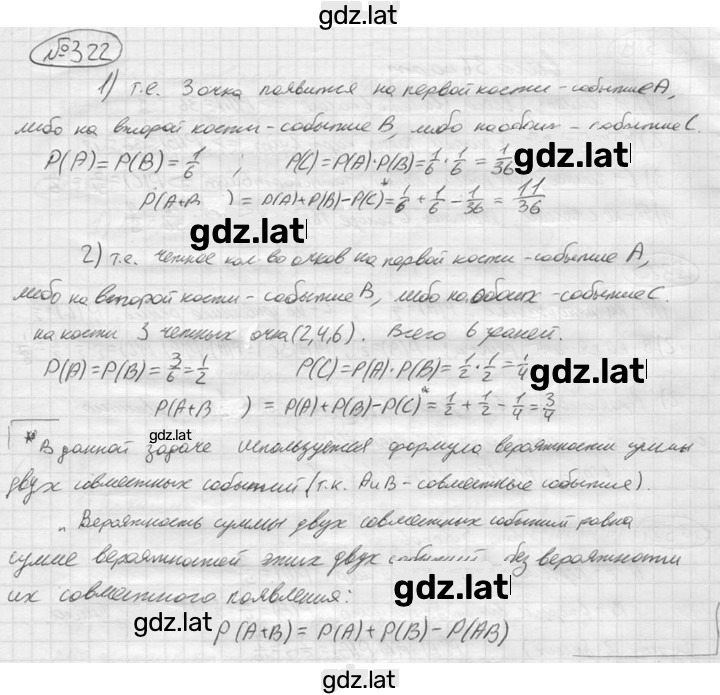 gdz.lat
№322
1) т.е. 3 очка появится на первой кости - событие A,
либо на второй кости - событие B, либо на обоих - событие C.
P(A)=P(B)=1/6 ; P(C)=P(A)·P(B)=1/6·1/6=1/36
gdz.lat
P(A+B ) = P(A)+P(B)-P(C)*=1/6+1/6-1/36=11/36
gdz.lat
2) т.е. четное кол-во очков на первой кости - событие A,
либо на второй кости - событие B, либо на обоих - событие C.
на кости 3 четных очка (2,4,6). Всего 6 граней.
P(A)=P(B)=3/6=1/2 P(C)=P(A)·P(B)=1/2·1/2=1/4
gdz.lat
P(A+B ) = P(A)+P(B)-P(C)*=1/2+1/2-1/4=3/4
gdz.lat
* В данной задаче используется формула вероятности суммы
двух совместных событий (т.к. A и B - совместные события).
„ Вероятность суммы двух совместных событий равна
сумме вероятностей этих двух событий без вероятности
их совместного появления:
gdz.lat
gdz.lat
P(A+B) = P(A)+P(B)-P(AB)
gdz.lat